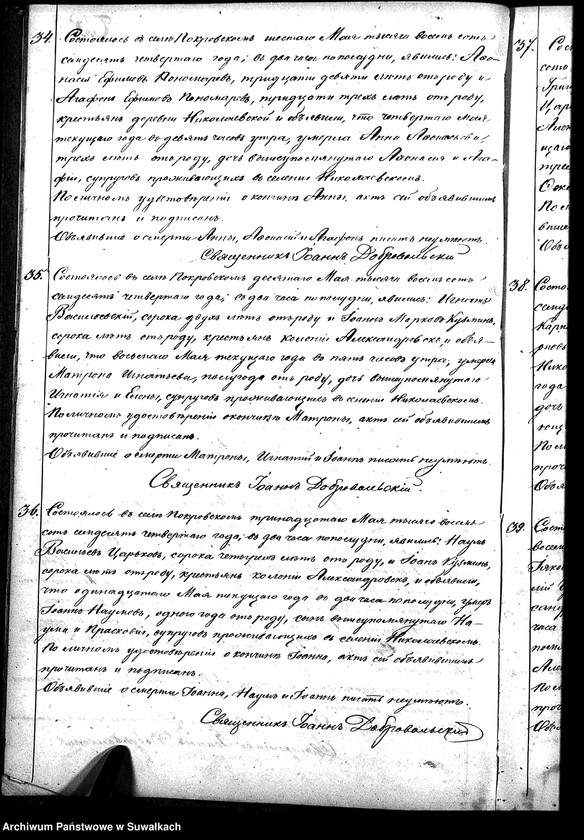 34. Состоялось въ селѣ Покровскомъ шестаго Мая тысяча восемь сотъ
семдесятъ четвертаго года, въ два часа пополудни, явились: Аѳо-
насій Ефимовъ Пономаревъ, тридцати девяти лѣтъ отъ роду и
Агафонъ Ефимовъ Пономаревъ, тридцати трехъ лѣтъ отъ роду,
крестьяне деревни Николаевской и объявили, что четвертаго Мая
текущаго года въ девять часовъ утра, умерла Анна Аѳонасьева,
трехъ лѣтъ отъ роду, дочь вышеупомянутаго Аѳонасія и Ага-
фіи, супруговъ проживающихъ въ селеніи Николаевскомъ.
По личномъ удостовѣреніи о кончинѣ Анны, актъ сей объявившимъ
прочитанъ и подписанъ.
Объявившіе о смерти Анны, Аѳонасій и Агафонъ писать неумѣютъ.
Священникъ Іоаннъ Добровольскій
35. Состоялось въ селѣ Покровскомъ десятаго Мая тысяча восемь сотъ
семдесятъ четвертаго года, въ два часа пополудни, явились: Игнатъ
Василевскій, сорока двухъ лѣтъ отъ роду и Іоаннъ Марковъ Кузминъ,
сорока лѣтъ отъ роду, крестьяне колоніи Александровске и объя-
вили, что восьмаго Мая текущаго года въ пять часовъ утра, умерла
Матрона Игнатьева, полугода отъ роду, дочь вышеупомянутаго
Игнатія и Елены, супруговъ проживающихъ въ селеніи Николаевскомъ.
По личномъ удостовѣреніи о кончинѣ Матроны, актъ сей объявившимъ
прочитанъ и подписанъ.
Объявившіе о смерти Матроны, Игнатій и Іоаннъ писать неумѣютъ.
Священникъ Іоаннъ Добровольскій.
36. Состоялось въ селѣ Покровскомъ тринадцатаго Мая тысяча восемь
сотъ семдесятъ четвертаго года, въ два часа пополудни, явились: Наумъ
Васильевъ Царьковъ, сорока четырехъ лѣтъ отъ роду, и Іоаннъ Кузминъ,
сорока лѣтъ отъ роду, крестьяне колоніи Александровске, и объявили,
что одинадцатаго Мая текущаго года въ два часа пополудни, умеръ
Іоаннъ Наумовъ, одного года отъ роду, сынъ вышеупомянутаго На-
ума и Прасковіи, супруговъ проживающихъ въ селеніи Николаевскомъ.
По личномъ удостовѣреніи о кончинѣ Іоанна, актъ сей объявившимъ
прочитанъ и подписанъ.
Объявившіе о смерти Іоанна, Наумъ и Іоаннъ писать неумѣютъ.
Священникъ Іоаннъ Добровольскій
37.
38.
39.
Archiwum Państwowe w Suwałkach